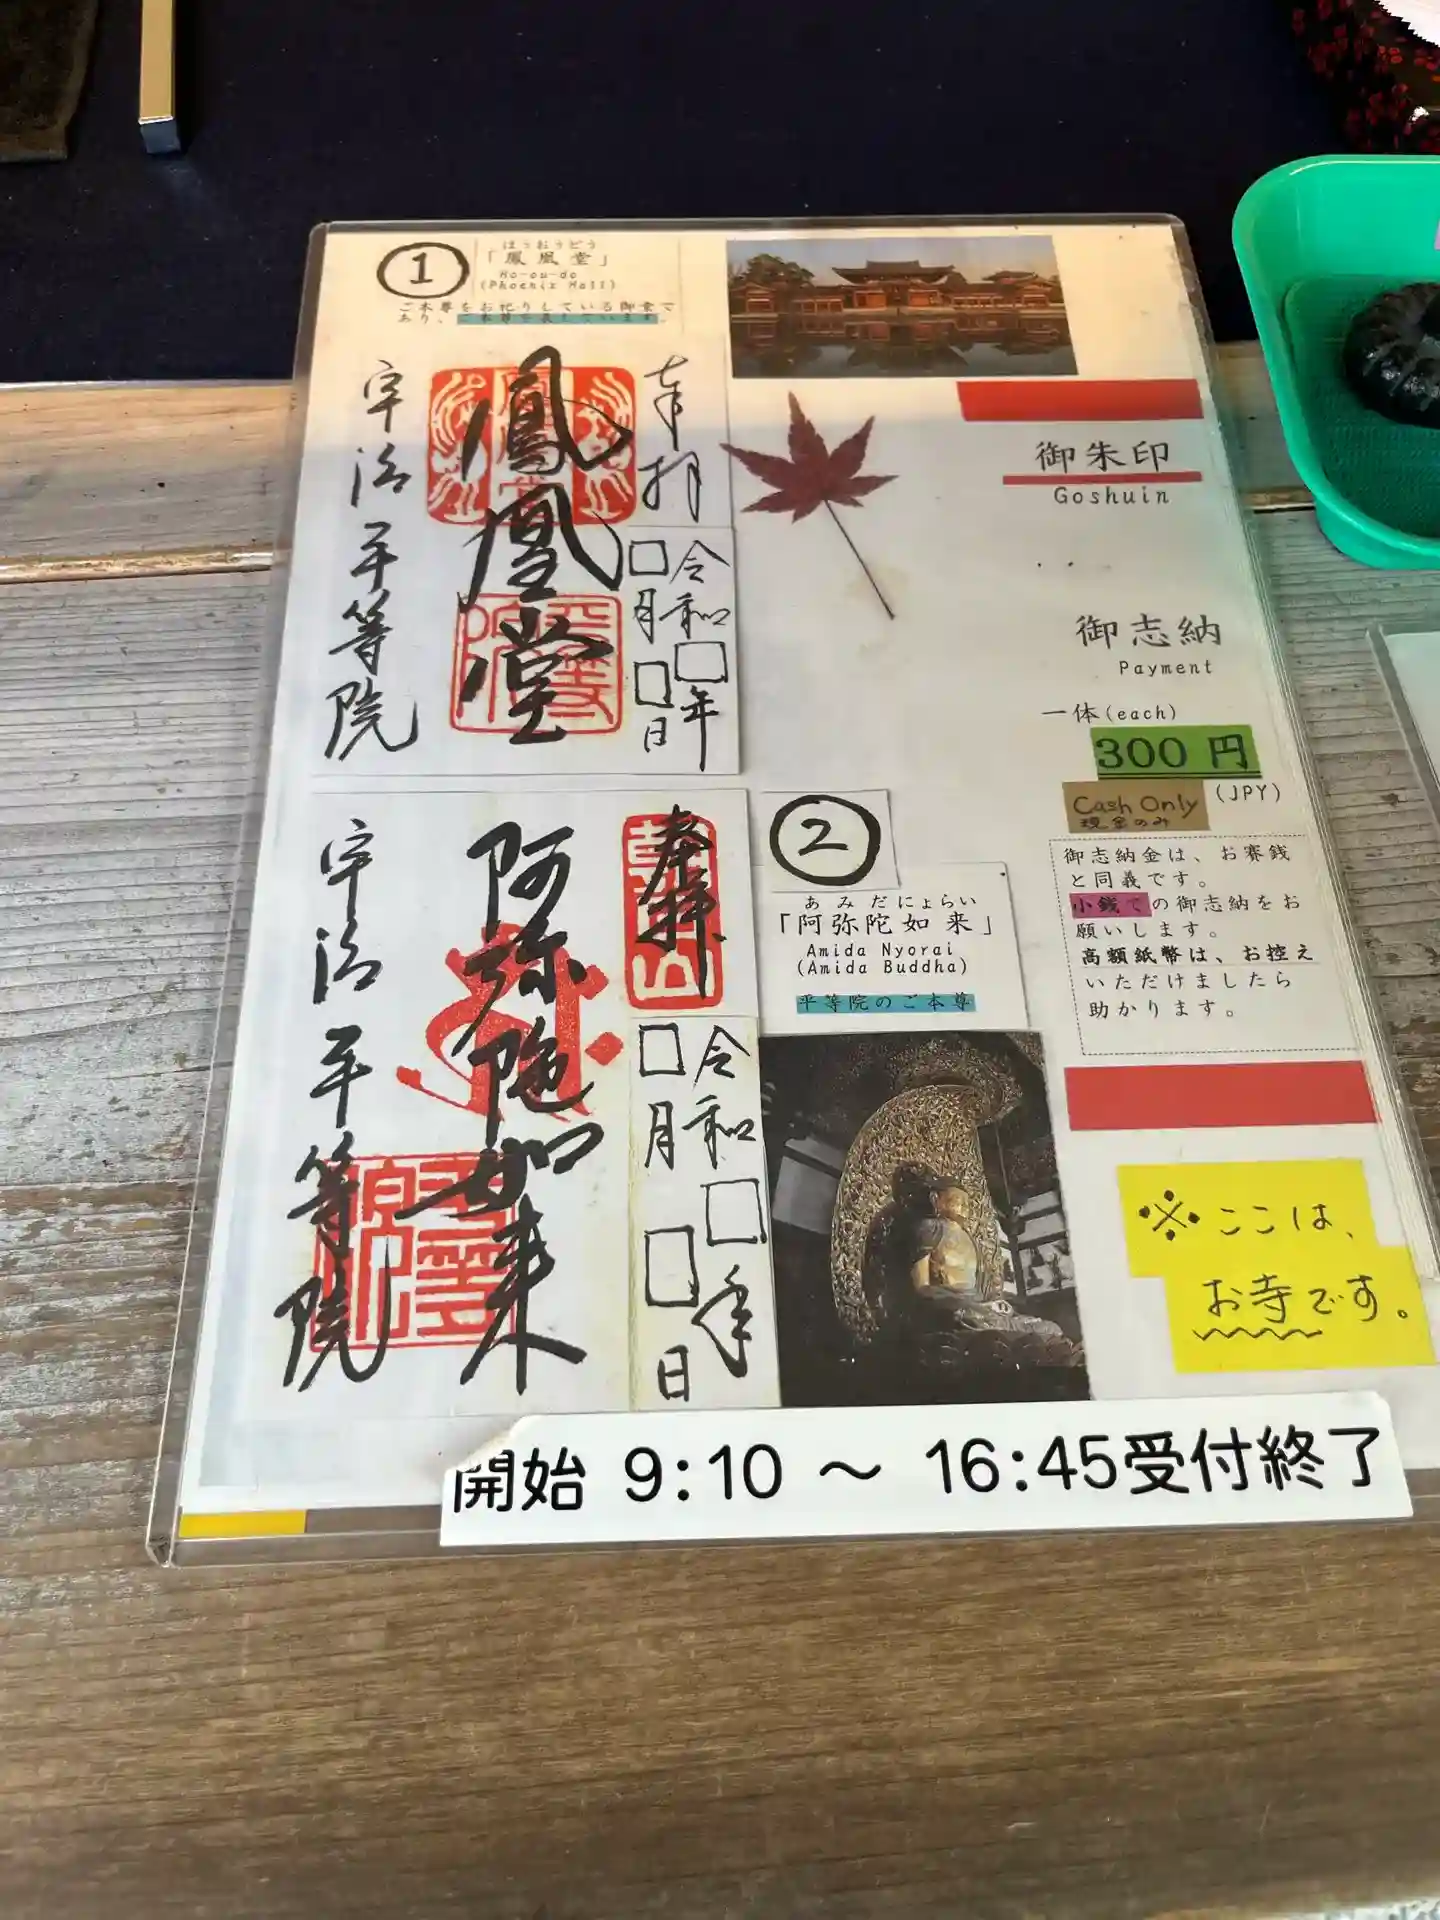 ①
ほうおうどう
「鳳凰堂」
Ho-ou-do
(Phoenix Hall)
ご本尊をお祀りしている御堂で
あり、ご本尊を表しています。
奉拝
令和□年
□月□日
鳳凰堂
宇治平等院
御朱印
Goshuin
御志納
Payment
一体(each)
300 円
(JPY)
Cash Only
現金のみ
御志納金は、お賽銭
と同義です。
小銭での御志納をお
願いします。
高額紙幣は、お控え
いただけましたら
助かります。
②
あみだにょらい
「阿弥陀如来」
Amida Nyorai
(Amida Buddha)
平等院のご本尊
奉拝
令和□年
□月□日
阿弥陀如来
宇治平等院
※ここは、
お寺です。
開始 9:10 ～ 16:45受付終了